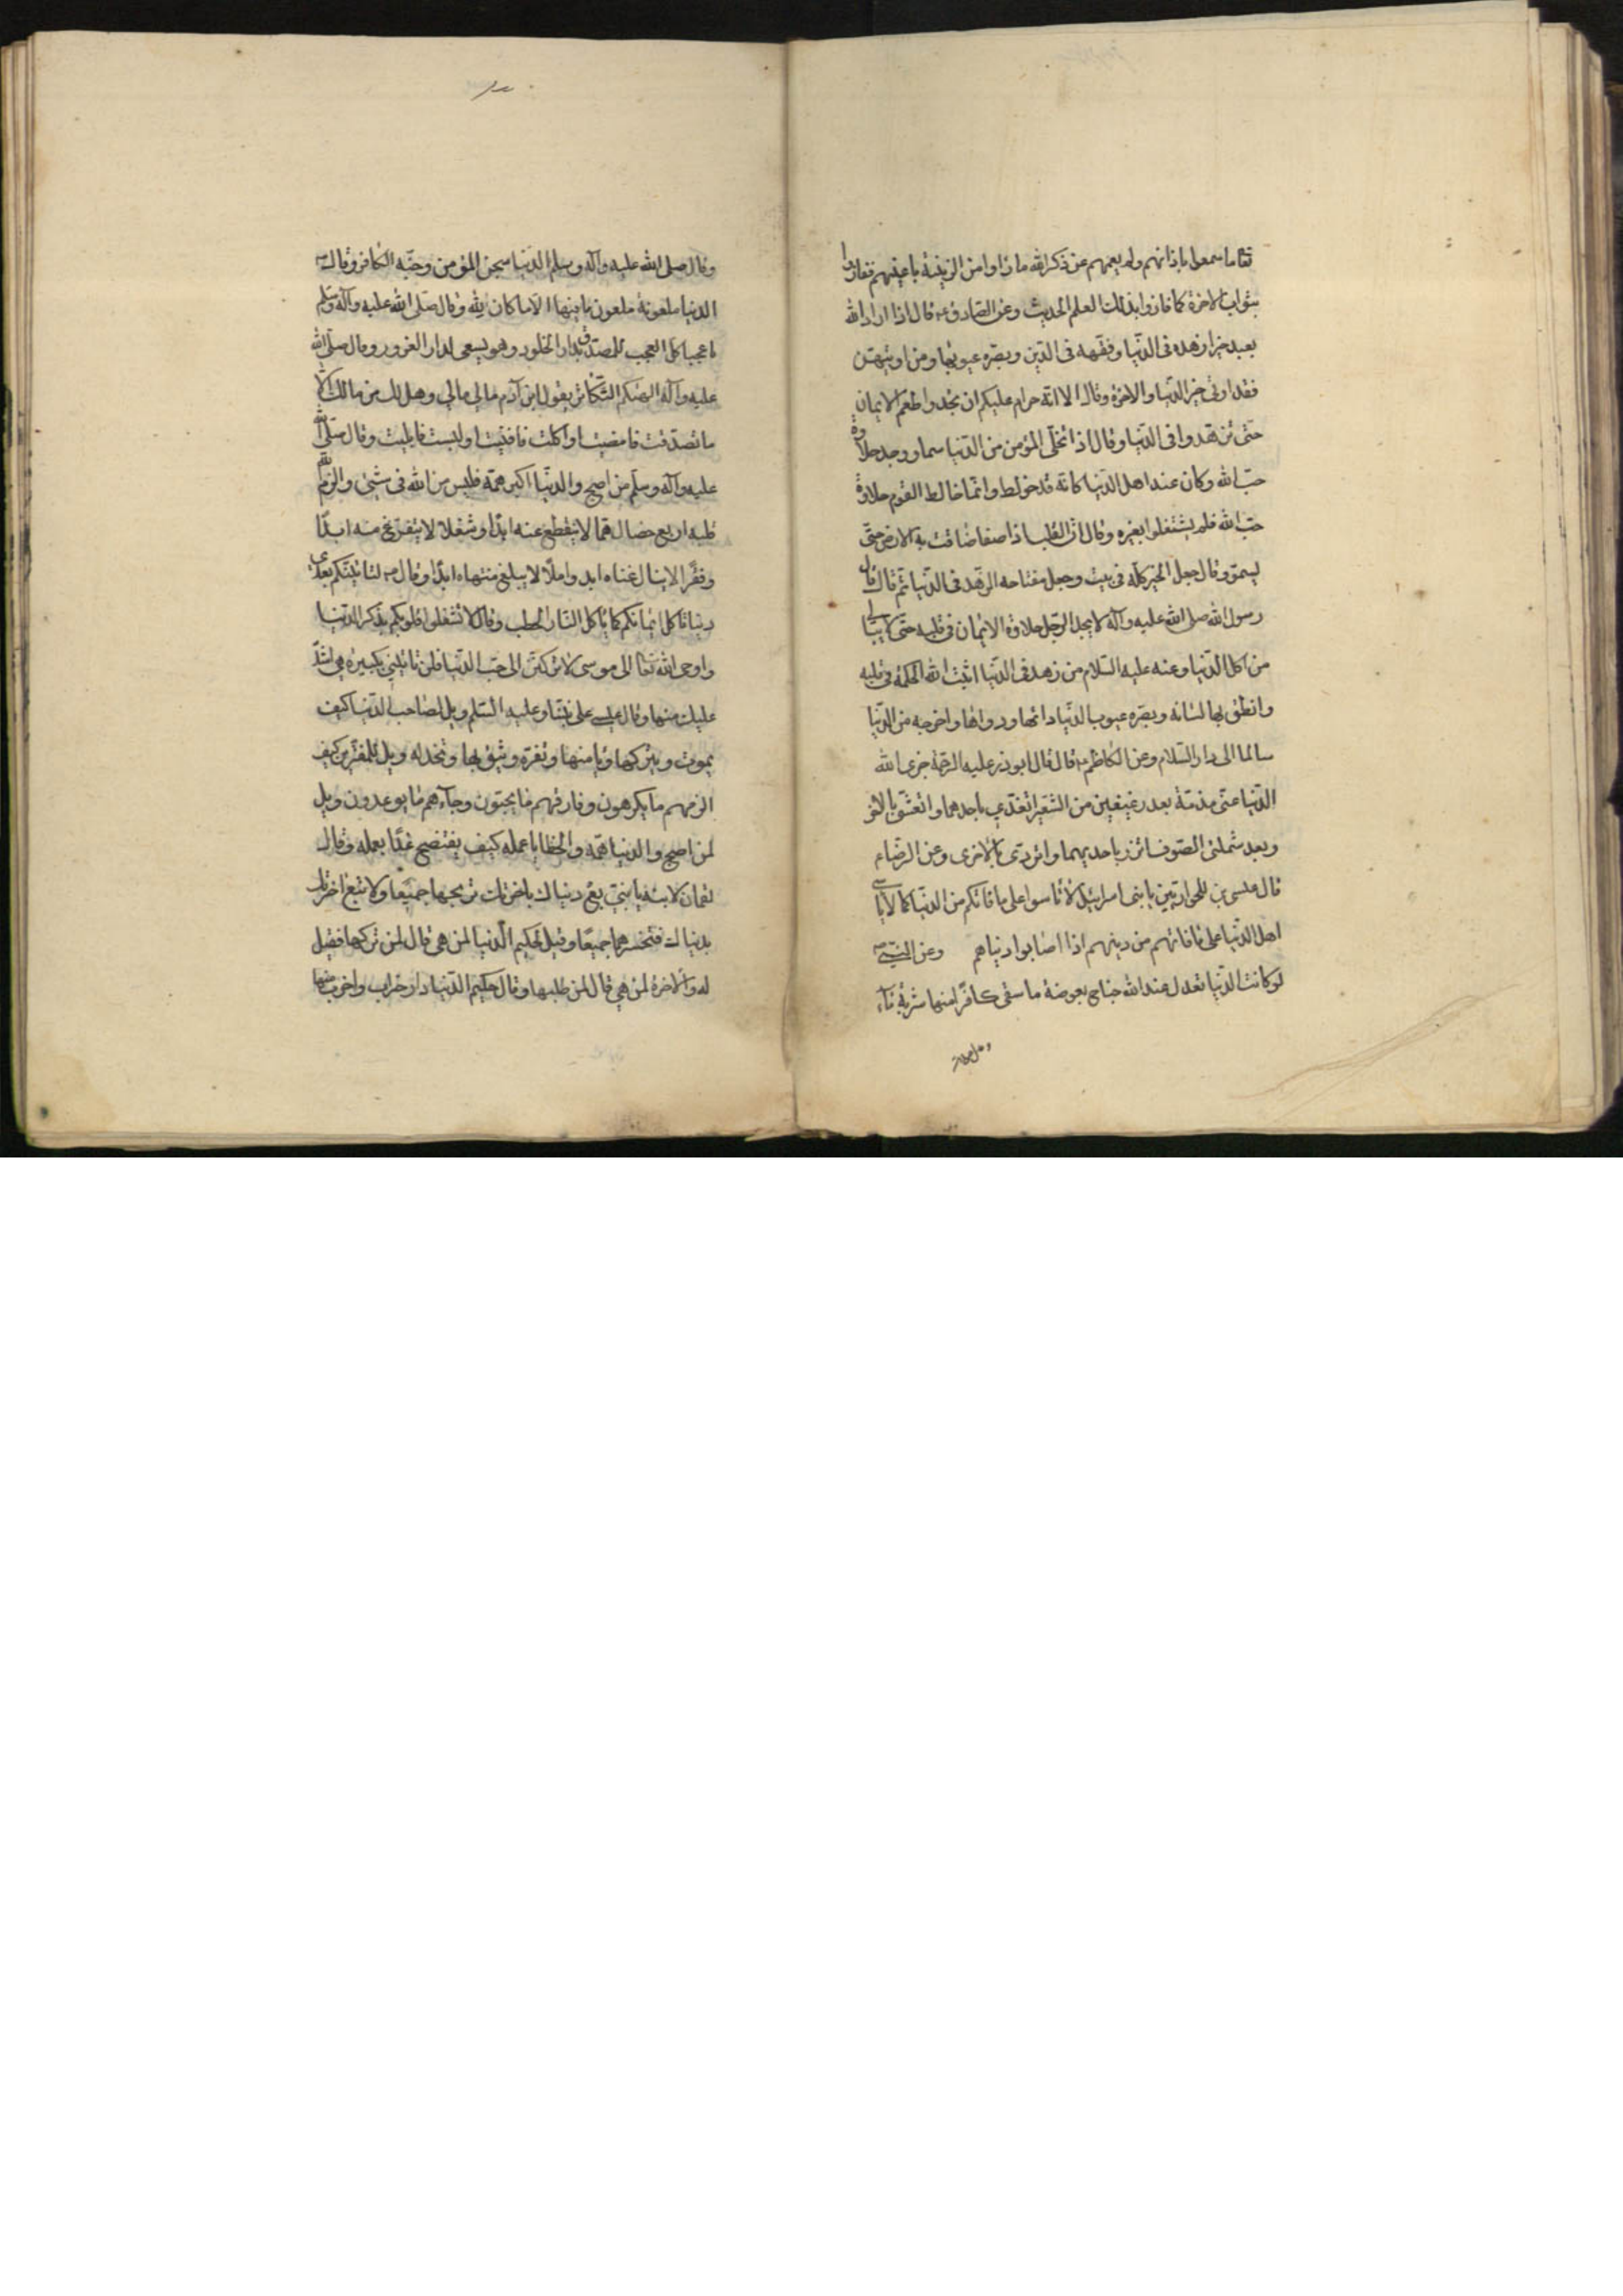 تعا ما سمعوا باذانهم ولم يعمهم عن ذكر الله ما راوا من الزينة باعينهم ففازوا
بثواب الاخرة كما فازوا بذلك العلم الحديث وعن الصادق ع قال اذا اراد الله
بعبد خيرا زهده فى الدنيا وفقهه فى الدين وبصره عيوبها ومن اوتيهن
فقد اوتى خير الدنيا والاخرة وقال الا انه حرام عليكم ان تجدوا طعم الايمان
حتى تزهدوا فى الدنيا وقال اذا تخلى المؤمن من الدنيا سما ووجد حلاوة
حب الله وكان عند اهل الدنيا كانه قد خولط وانما خالط القوم حلاوة
حب الله فلم يشتغلوا بغيره وقال ان القلب اذا صفا ضاقت به الارض حتى
يسمو وقال جعل الخير كله فى بيت وجعل مفتاحه الزهد فى الدنيا ثم قال قال
رسول الله صلى الله عليه وآله لا يجد الرجل حلاوة الايمان فى قلبه حتى لا يبالى
من اكل الدنيا وعنه عليه السلام من زهد فى الدنيا اثبت الله الحكمة فى قلبه
وانطق بها لسانه وبصره عيوب الدنيا دائها ودوائها واخرجه من الدنيا
سالما الى دار السلام وعن الكاظم ع قال قال ابوذر عليه الرحمة جزى الله
الدنيا عنى مذمة بعد رغيفين من الشعير اتغدي باحدهما واتعشى بالاخر
وبعد شملتى الصوف اتزر باحديهما واتردى بالاخرى وعن الرضا ع
قال عيسى بن للحواريين يا بنى اسرائيل لا تاسوا على ما فاتكم من الدنيا كما لا ياسى
اهل الدنيا على ما فاتهم من دينهم اذا اصابوا دنياهم وعن النبي ص
لو كانت الدنيا تعدل عند الله جناح بعوضة ما سقى كافرا منها شربة مآء
وقال صلى الله عليه وآله وسلم الدنيا سجن المؤمن وجنة الكافر وقال ص
الدنيا ملعونة ملعون ما فيها الا ما كان لله وقال صلى الله عليه وآله وسلم
يا عجبا كل العجب للمصدق بدار الخلود وهو يسعى لدار الغرور وقال صلى الله
عليه وآله الهيكم التكاثر يقول ابن آدم مالي مالي وهل لك من مالك الا
ما تصدقت فامضيت او اكلت فافنيت او لبست فابليت وقال صلى الله
عليه وآله وسلم من اصبح والدنيا اكبر همه فليس من الله فى شئ والزم الله
قلبه اربع خصال هما لا ينقطع عنه ابدا وشغلا لا يتفرغ منه ابدا
وفقرا لا ينال غناه ابدا واملا لا يبلغ منتهاه ابدا وقال ص لتاتينكم بعدي
دنيا تاكل ايمانكم كما تاكل النار الحطب وقال لا تشغلوا قلوبكم بذكر الدنيا
واوحى الله تعا الى موسى لا تركنن الى حب الدنيا فلن تاتيني بكبيرة هى اشد
عليك منها وقال عيسى على نبينا وعليه السلم ويل لصاحب الدنيا كيف
يموت ويتركها ويامنها وتغره ويثق بها وتخذله ويل للمغترين كيف
الزمهم ما يكرهون وفارقهم ما يحبون وجآءهم ما يوعدون وويل
لمن اصبح والدنيا همه والخطايا عمله كيف يفتضح غدا بعمله وقال
لقمان لابنه يا بني بع دنياك باخرتك تربحهما جميعا ولا تبع اخرتك
بدنياك فتخسرهما جميعا وقيل لحكيم الدنيا لمن هى قال لمن تركها فقيل
له والآخرة لمن هي قال لمن طلبها وقال حكيم الدنيا دار خراب واخرب منها